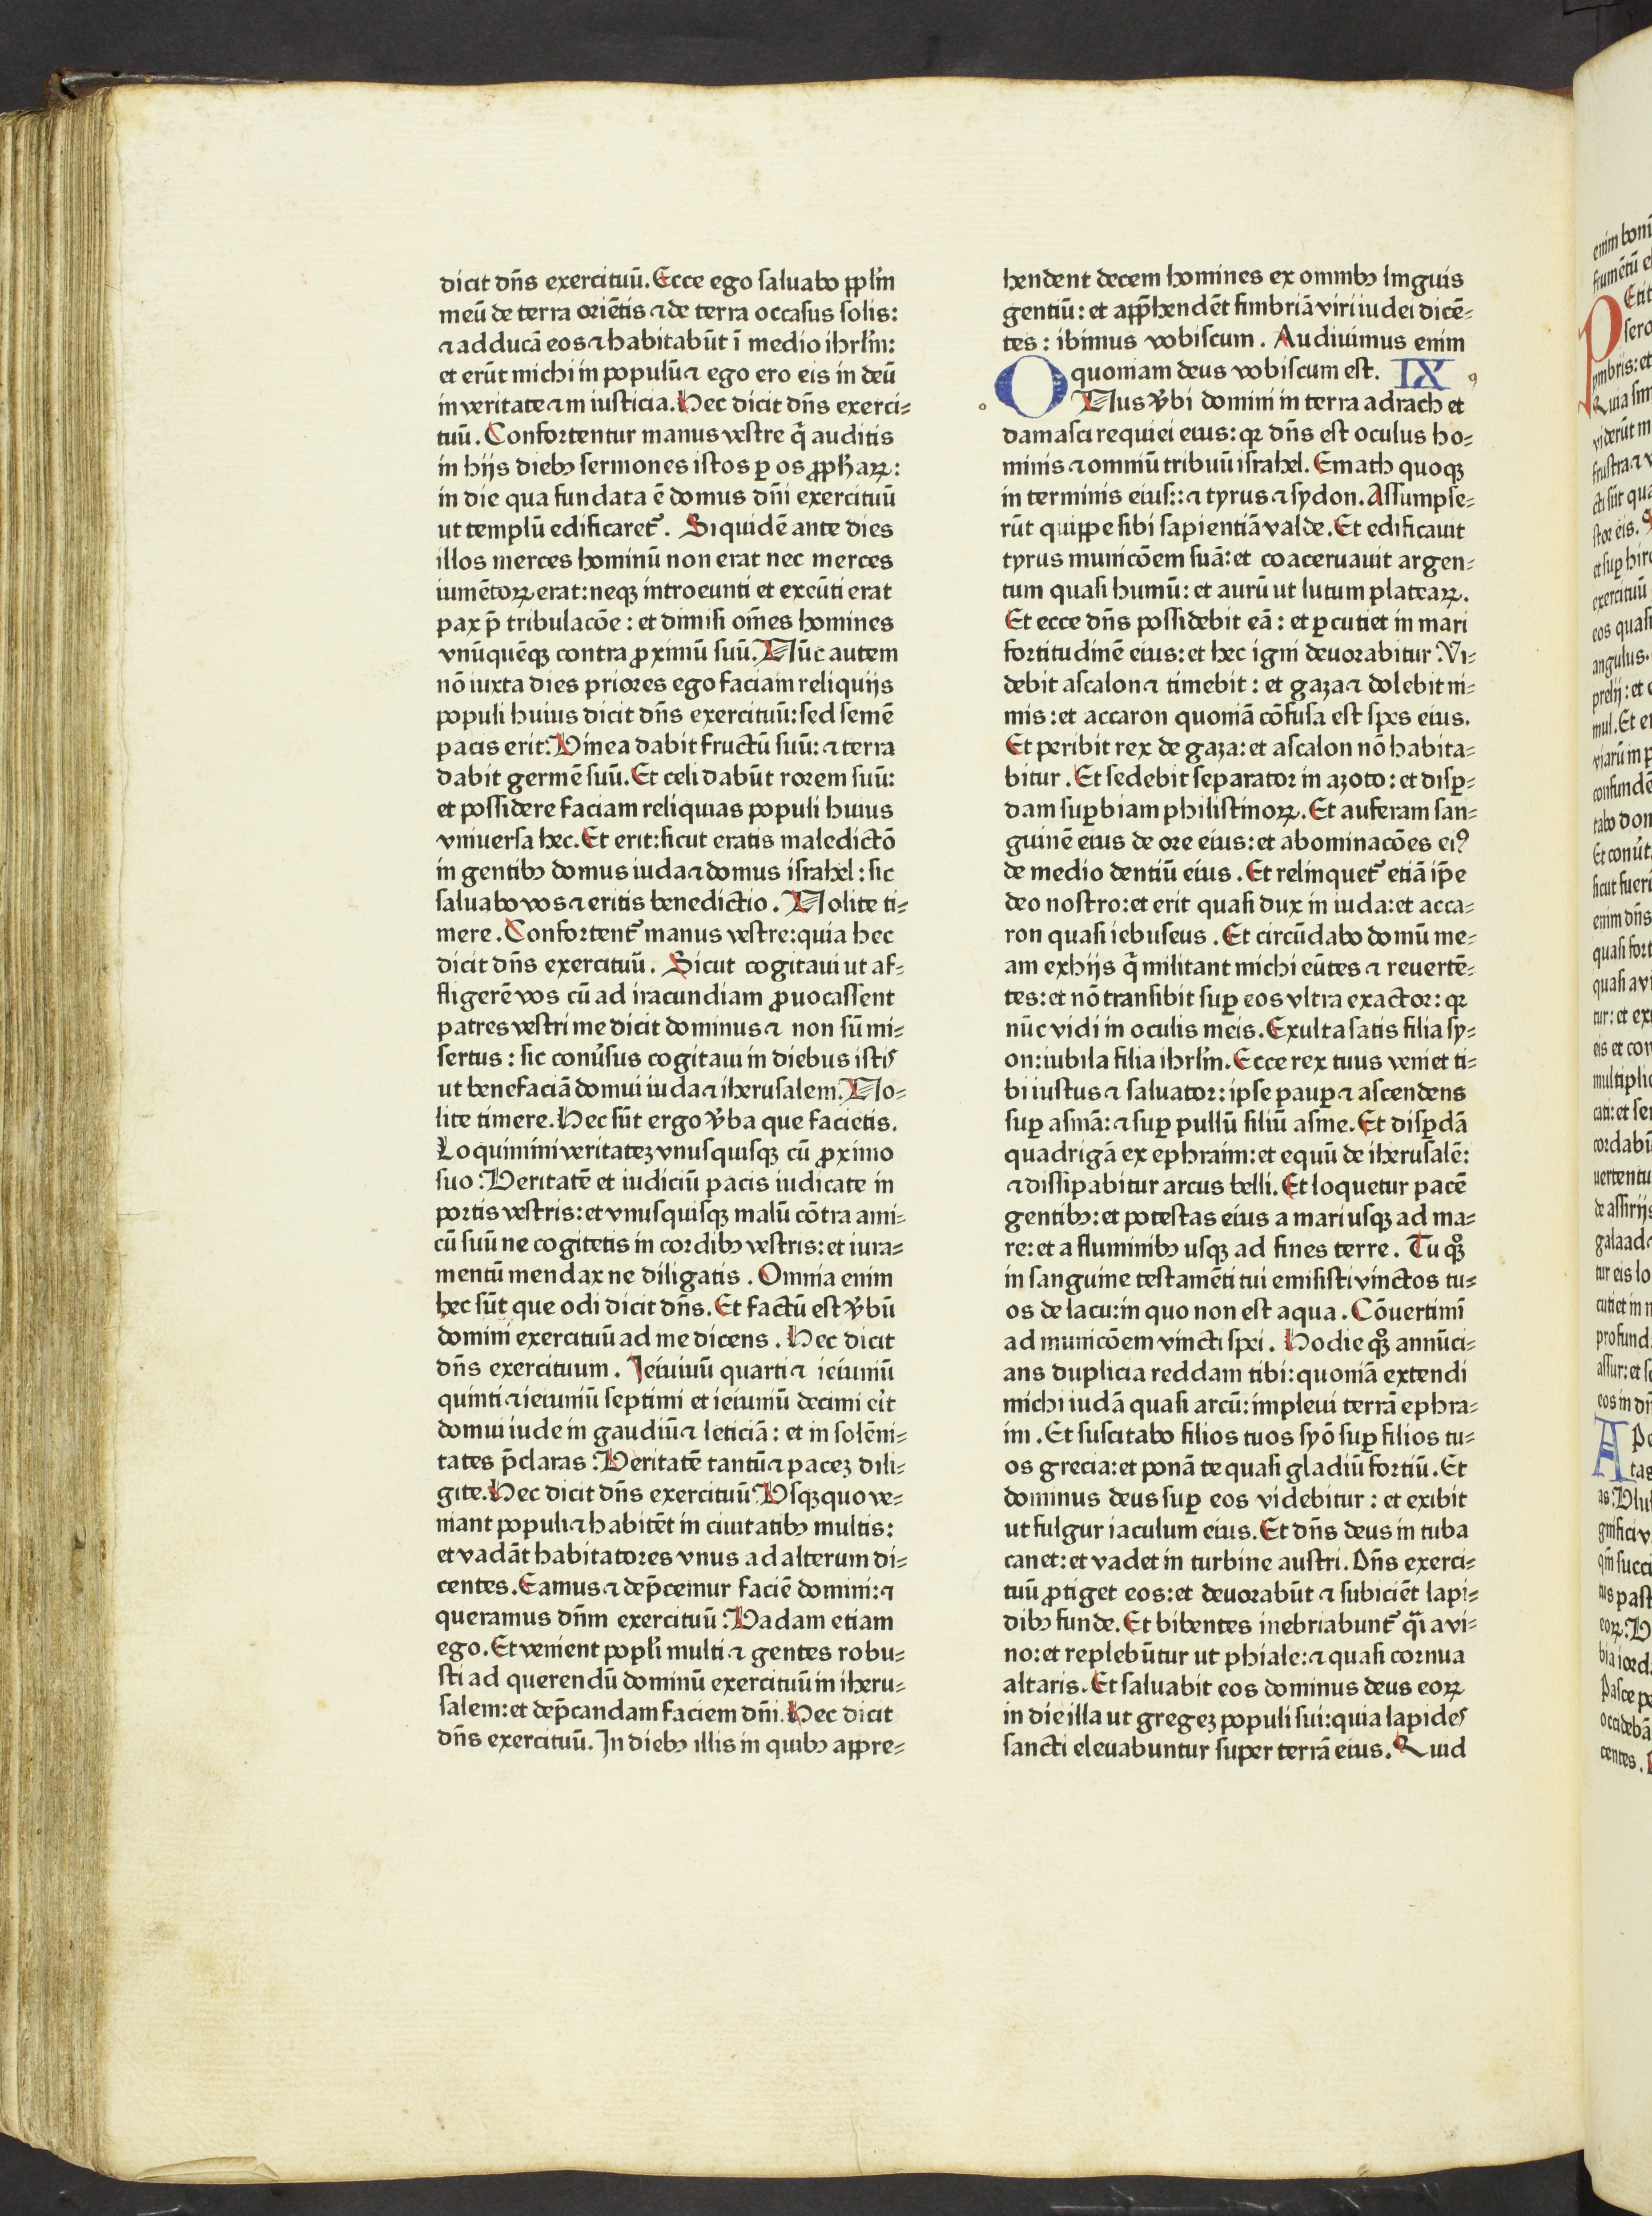 dicit dn̄s exercituū. Ecce ego saluabo pp̄lm̄
meū de terra oriētis ⁊ de terra occasus solis:
⁊ adducā eos ⁊ habitabūt ī medio ihrl̄m:
et erūt michi in populū ⁊ ego ero eis in deū
in veritate ⁊ in iusticia. Hec dicit dn̄s exerci⸗
tuū. Confortentur manus vestre q̄ auditis
in hijs diebꝫ sermones istos ꝑ os ꝓpħaꝝ:
in die qua fundata ē domus dn̄i exercituū
ut templū edificaret᷑. Siquidē ante dies
illos merces hominū non erat nec merces
iumētoꝝ erat: neqꝫ introeunti et exeūti erat
pax p̄ tribulacōe: et dimisi om̄es homines
vnūquēqꝫ contra ꝓximū suū. Nūc autem
nō iuxta dies priores ego faciam reliquijs
populi huius dicit dn̄s exercituū: sed semē
pacis erit. Vinea dabit fructū suū: ⁊ terra
dabit germē suū. Et celi dabūt rorem suū:
et possidere faciam reliquias populi huius
vniuersa hec. Et erit: sicut eratis maledictō
in gentibꝫ domus iuda ⁊ domus israhel: sic
saluabo vos ⁊ eritis benedictio. Nolite ti⸗
mere. Confortent᷑ manus vestre: quia hec
dicit dn̄s exercituū. Sicut cogitaui ut af⸗
fligerē vos cū ad iracundiam ꝓuocassent
patres vestri me dicit dominus ⁊ non sū mi⸗
sertus: sic conu̓sus cogitaui in diebus istis
ut benefaciā domui iuda ⁊ iherusalem. No⸗
lite timere. Hec sūt ergo v̓ba que facietis.
Loquimini veritateꝫ vnusquisqꝫ cū ꝓximo
suo. Veritatē et iudiciū pacis iudicate in
portis vestris: et vnusquisqꝫ malū cōtra ami⸗
cū suū ne cogitetis in cordibꝫ vestris: et iura⸗
mentū mendax ne diligatis. Omnia enim
hec sūt que odi dicit dn̄s. Et factū est v̓bū
domini exercituū ad me dicens. Hec dicit
dn̄s exercituum. Ieiuiuū quarti ⁊ ieiuniū
quinti ⁊ ieiuniū septimi et ieiuniū decimi er̓it
domui iude in gaudiū ⁊ leticiā: et in solēni⸗
tates p̄claras. Veritatē tantū ⁊ paceꝫ dili⸗
gite. Hec dicit dn̄s exercituū. Vsqꝫquo ve⸗
niant populi ⁊ habitēt in ciuitatibꝫ multis:
et vadāt habitatores vnus ad alterum di⸗
centes. Eamus ⁊ dep̄cemur faciē domini: ⁊
queramus dn̄m exercituū. Vadam etiam
ego. Et venient popl̄i multi ⁊ gentes robu⸗
sti ad querendū dominū exercituū in iheru⸗
salem: et dep̄candam faciem dn̄i. Hec dicit
dn̄s exercituū. In diebꝫ illis in quibꝫ appre⸗
hendent decem homines ex omnibꝫ linguis
gentiū: et app̄hendēt fimbriā viri iudei dicē⸗
tes: ibimus vobiscum. Audiuimus enim
quoniam deus vobiscum est. IX
ONus v̓bi domini in terra adrach et
damasci requiei eius: qꝛ dn̄s est oculus ho⸗
minis ⁊ omniū tribuū israhel. Emath quoqꝫ
in terminis eius:: ⁊ tyrus ⁊ sydon. Assumpse⸗
rūt quippe sibi sapientiā valde. Et edificauit
tyrus municōem suā: et coaceruauit argen⸗
tum quasi humū: et aurū ut lutum plateaꝝ.
Et ecce dn̄s possidebit eā: et ꝑcutiet in mari
fortitudinē eius: et hec igni deuorabitur. Vi⸗
debit ascalon ⁊ timebit: et gaza ⁊ dolebit ni⸗
mis: et accaron quoniā cōfusa est spes eius.
Et peribit rex de gaza: et ascalon nō habita⸗
bitur. Et sedebit separator in azoto: et disꝑ⸗
dam suꝑbiam philistinoꝝ. Et auferam san⸗
guinē eius de ore eius: et abominacōes eiꝰ
de medio dentiū eius. Et relinquet᷑ etiā ip̄e
deo nostro: et erit quasi dux in iuda: et acca⸗
ron quasi iebuseus. Et circūdabo domū me⸗
am ex hijs q̄ militant michi eūtes ⁊ reuertē⸗
tes: et nō transibit suꝑ eos vltra exactor: qꝛ
nūc vidi in oculis meis. Exulta satis filia sy⸗
on: iubila filia ihrl̄m. Ecce rex tuus veniet ti⸗
bi iustus ⁊ saluator: ipse pauꝑ ⁊ ascendens
suꝑ asinā: ⁊ suꝑ pullū filiū asine. Et disꝑdā
quadrigā ex ephraim: et equū de iherusalē:
⁊ dissipabitur arcus belli. Et loquetur pacē
gentibꝫ: et potestas eius a mari usqꝫ ad ma⸗
re: et a fluminibꝫ usqꝫ ad fines terre. Tu qꝫ̊
in sanguine testamēti tui emisisti vinctos tu⸗
os de lacu: in quo non est aqua. Cōuertimī
ad municōem vincti spei. Hodie qꝫ̊ annūci⸗
ans duplicia reddam tibi: quoniā extendi
michi iudā quasi arcū: impleui terrā ephra⸗
im. Et suscitabo filios tuos syō suꝑ filios tu⸗
os grecia: et ponā te quasi gladiū fortiū. Et
dominus deus suꝑ eos videbitur: et exibit
ut fulgur iaculum eius. Et dn̄s deus in tuba
canet: et vadet in turbine austri. Dn̄s exerci⸗
tuū ꝓtiget eos: et deuorabūt ⁊ subiciēt lapi⸗
dibꝫ funde. Et bibentes inebriabunt᷑ qᷓi a vi⸗
no: et replebūtur ut phiale: ⁊ quasi cornua
altaris. Et saluabit eos dominus deus eoꝝ
in die illa ut gregeꝫ populi sui: quia lapides
sancti eleuabuntur super terrā eius. Quid